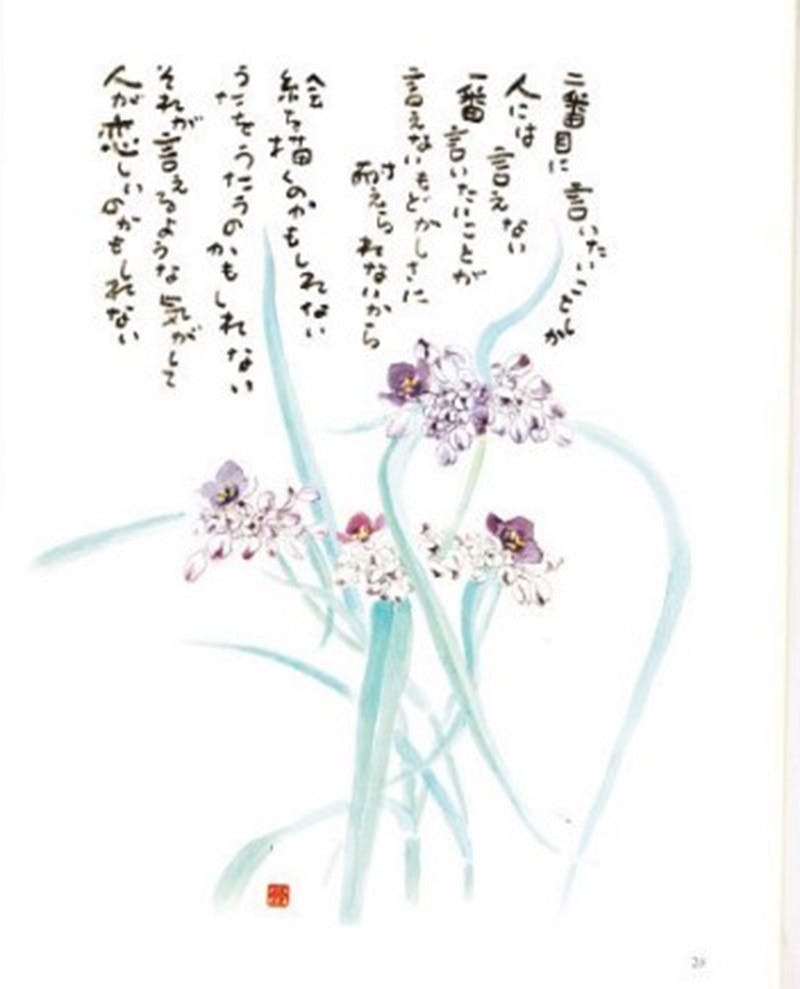 二番目に言いたいことしか
人には言えない
一番言いたいことが
言えないもどかしさに
耐えられないから
絵を描くのかもしれない
うたをうたうのかもしれない
それが言えるような気がして
人が恋しいのかもしれない